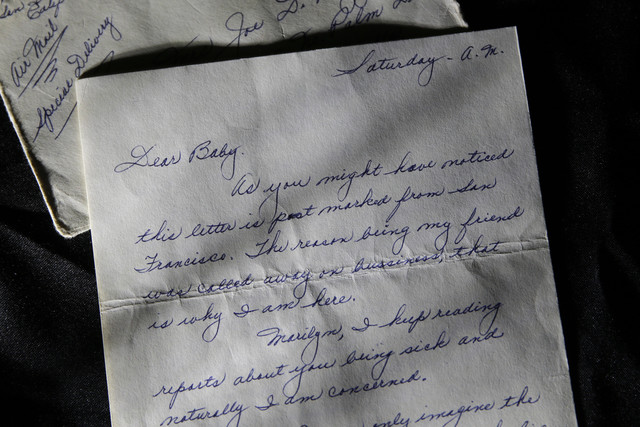 Air Mail
Special Delivery
Joe D.
Palm
Saturday - A.M.
Dear Baby.
As you might have noticed
this letter is post marked from San
Francisco. The reason being my friend
was called away on bussiness, that
is why I am here.
Marilyn, I keep reading
reports about you being sick and
naturally I am concerned.
only imagine the